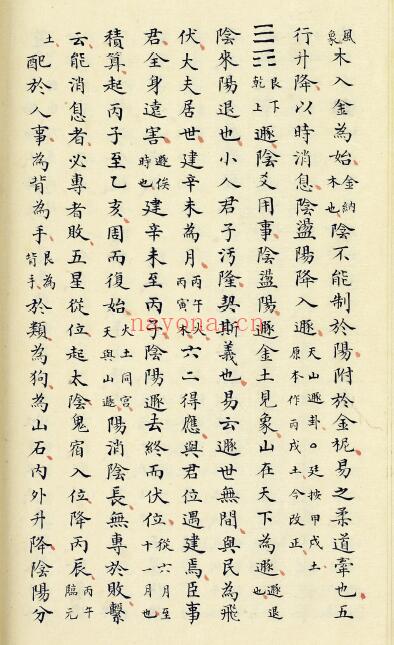 風象木入金為始金納木也陰不能制於陽附於金柅易之柔道牽也五
行升降以時消息陰盪陽降入遯天山遯卦○廷按甲戌土原本作丙戌土今改正
䷠艮下乾上遯陰爻用事陰盪陽遯金土見象山在天下為遯遯退也
陰來陽退也小人君子污隆契斯義也易云遯世無間與民為飛
伏大夫居世建辛未為月丙午火丙寅木六二得應與君位遇建焉臣事
君全身遠害遯俟時也建辛未至丙子陰陽遯去終而伏位從六月至十一月也
積算起丙子至乙亥周而復始火土同宮天與山遯陽消陰長無專於敗繫
云能消息者必專者敗五星從位起太陰鬼宿入位降丙辰丙午臨元
土配於人事為背為手艮為背手於類為狗為山石內外升降陰陽分
nayona.cn